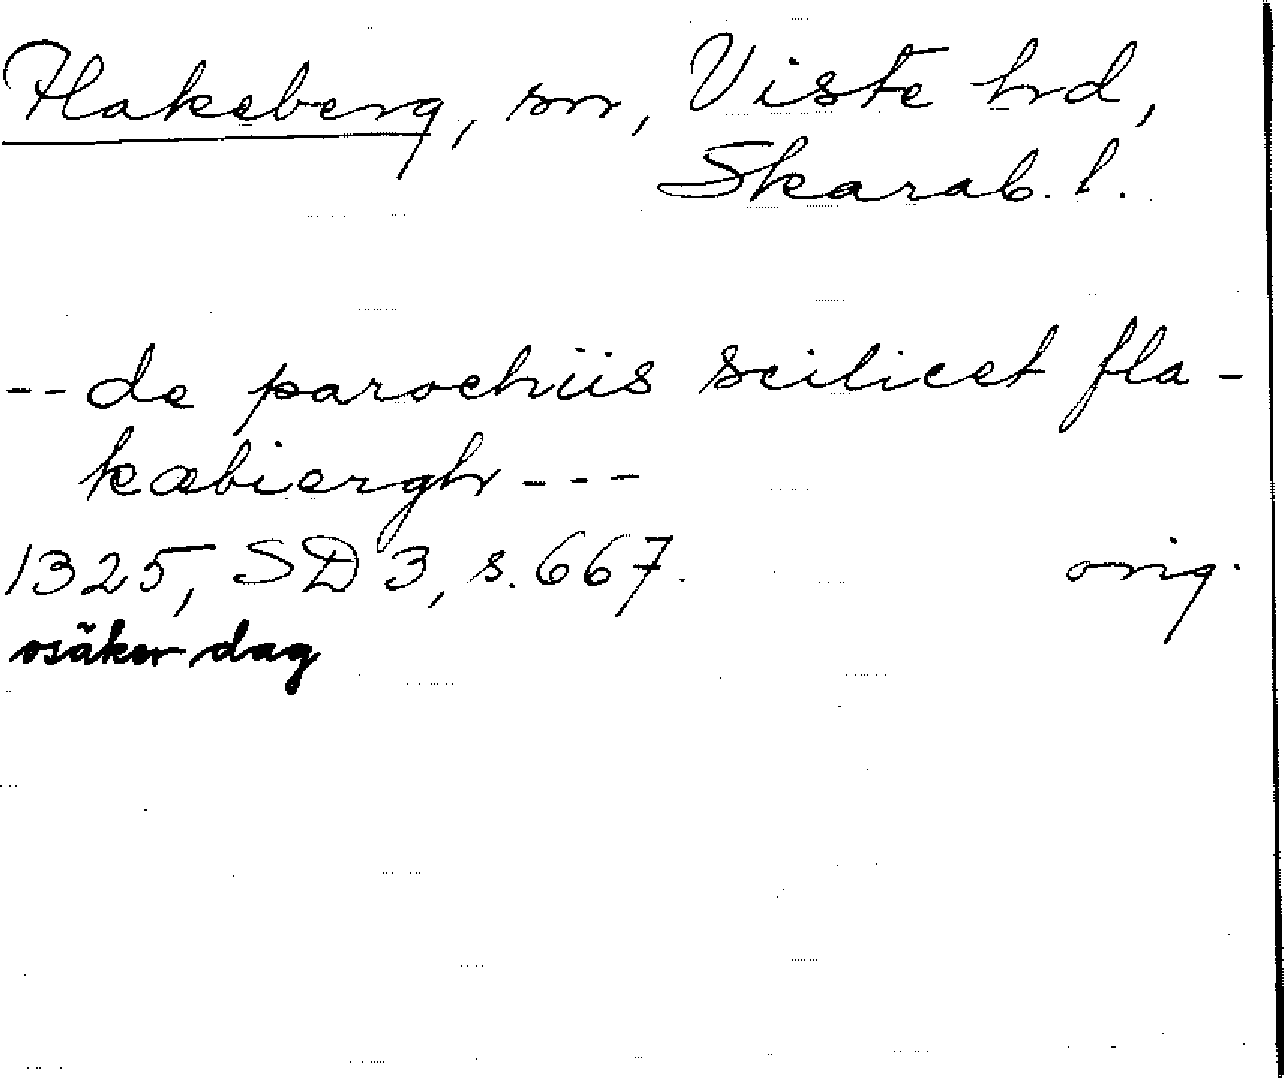 Flakeberg, sn, Viste hrd,
Skarab. l.
-- de parochiis scilicet fla-
kæbiergh ---
1325, SD 3, s. 667. orig.
osäker dag